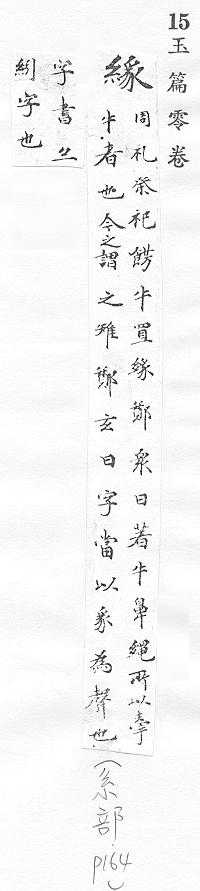 15玉篇零卷
絼
周礼祭祀餝牛置絼鄭衆曰若牛鼻繩所以牽
牛者也今之謂之雉鄭玄曰字當以豸為聲也
(糸部 p164)
字書亦
紖字也